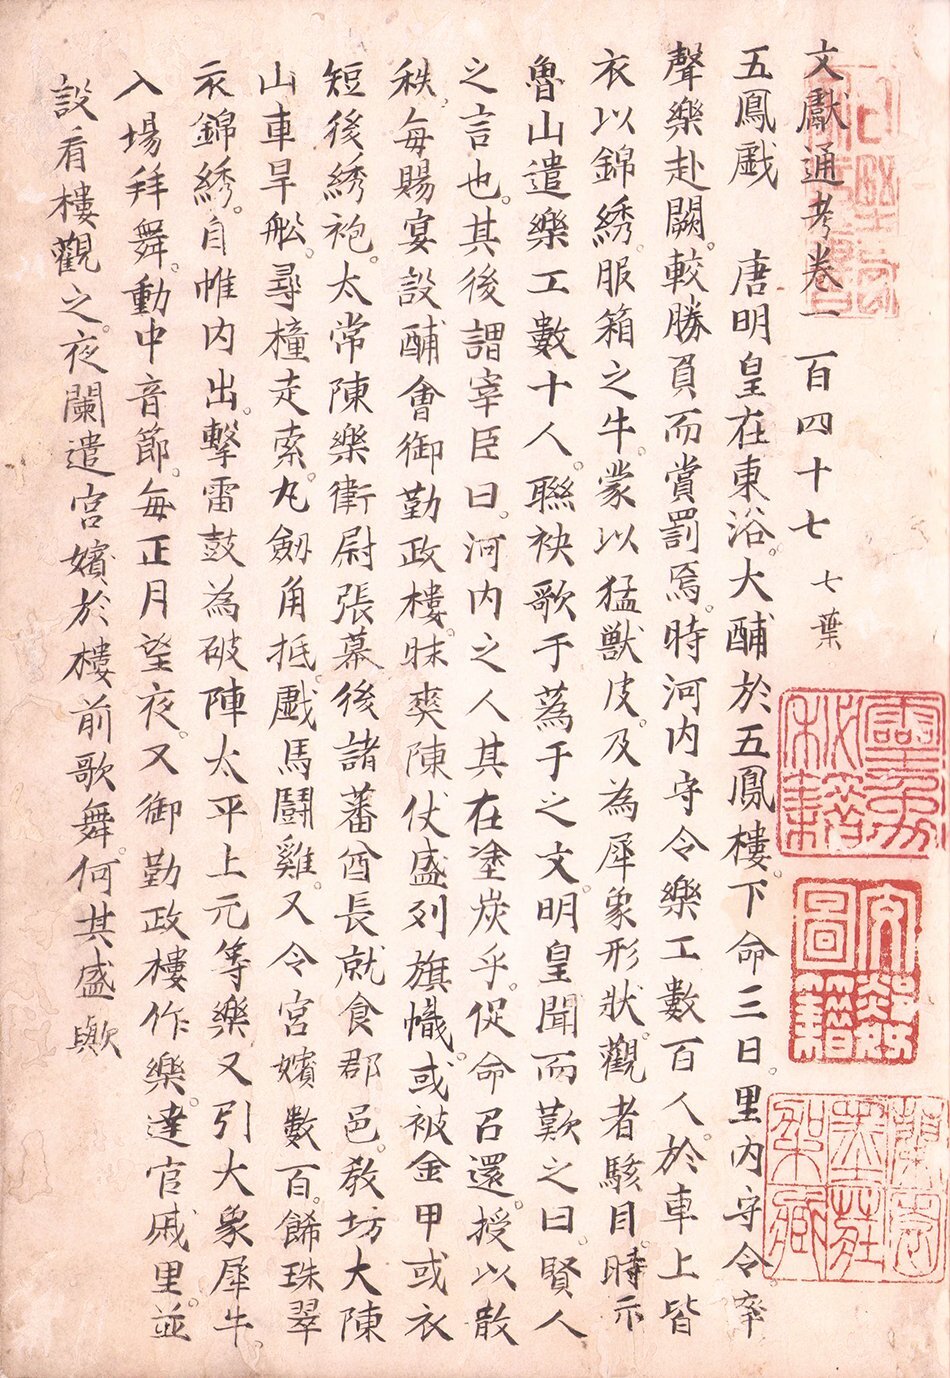 文獻通考卷一百四十七 七葉
五鳳戲 唐明皇在東洛。大酺於五鳳樓。下命三日。里內守令。率
聲樂赴闕。較勝負而賞罰焉。時河內守令樂工數百人。於車上皆
衣以錦綉。服箱之牛。蒙以猛獸皮。及為犀象形狀。觀者駭目。時示
魯山遣樂工數十人。聯袂歌于蒍于之文。明皇聞而歎之曰。賢人
之言也。其後謂宰臣曰。河內之人其在塗炭乎。促命召還。授以散
秩。每賜宴設酺會御勤政樓。昧爽陳仗盛列旗幟。或被金甲或衣
短後綉袍。太常陳樂衛尉張幕後諸蕃酋長就食郡邑。教坊大陳
山車旱船。尋橦走索。丸劒角抵。戲馬鬪雞。又令宮嬪數百。餙珠翠
衣錦綉。自帷內出。擊雷鼓為破陣太平上元等樂又引大象犀牛。
入場拜舞。動中音節。每正月望夜。又御勤政樓作樂。達官戚里並
設看樓觀之。夜闌遣宮嬪於樓前歌舞。何其盛歟
圖籍